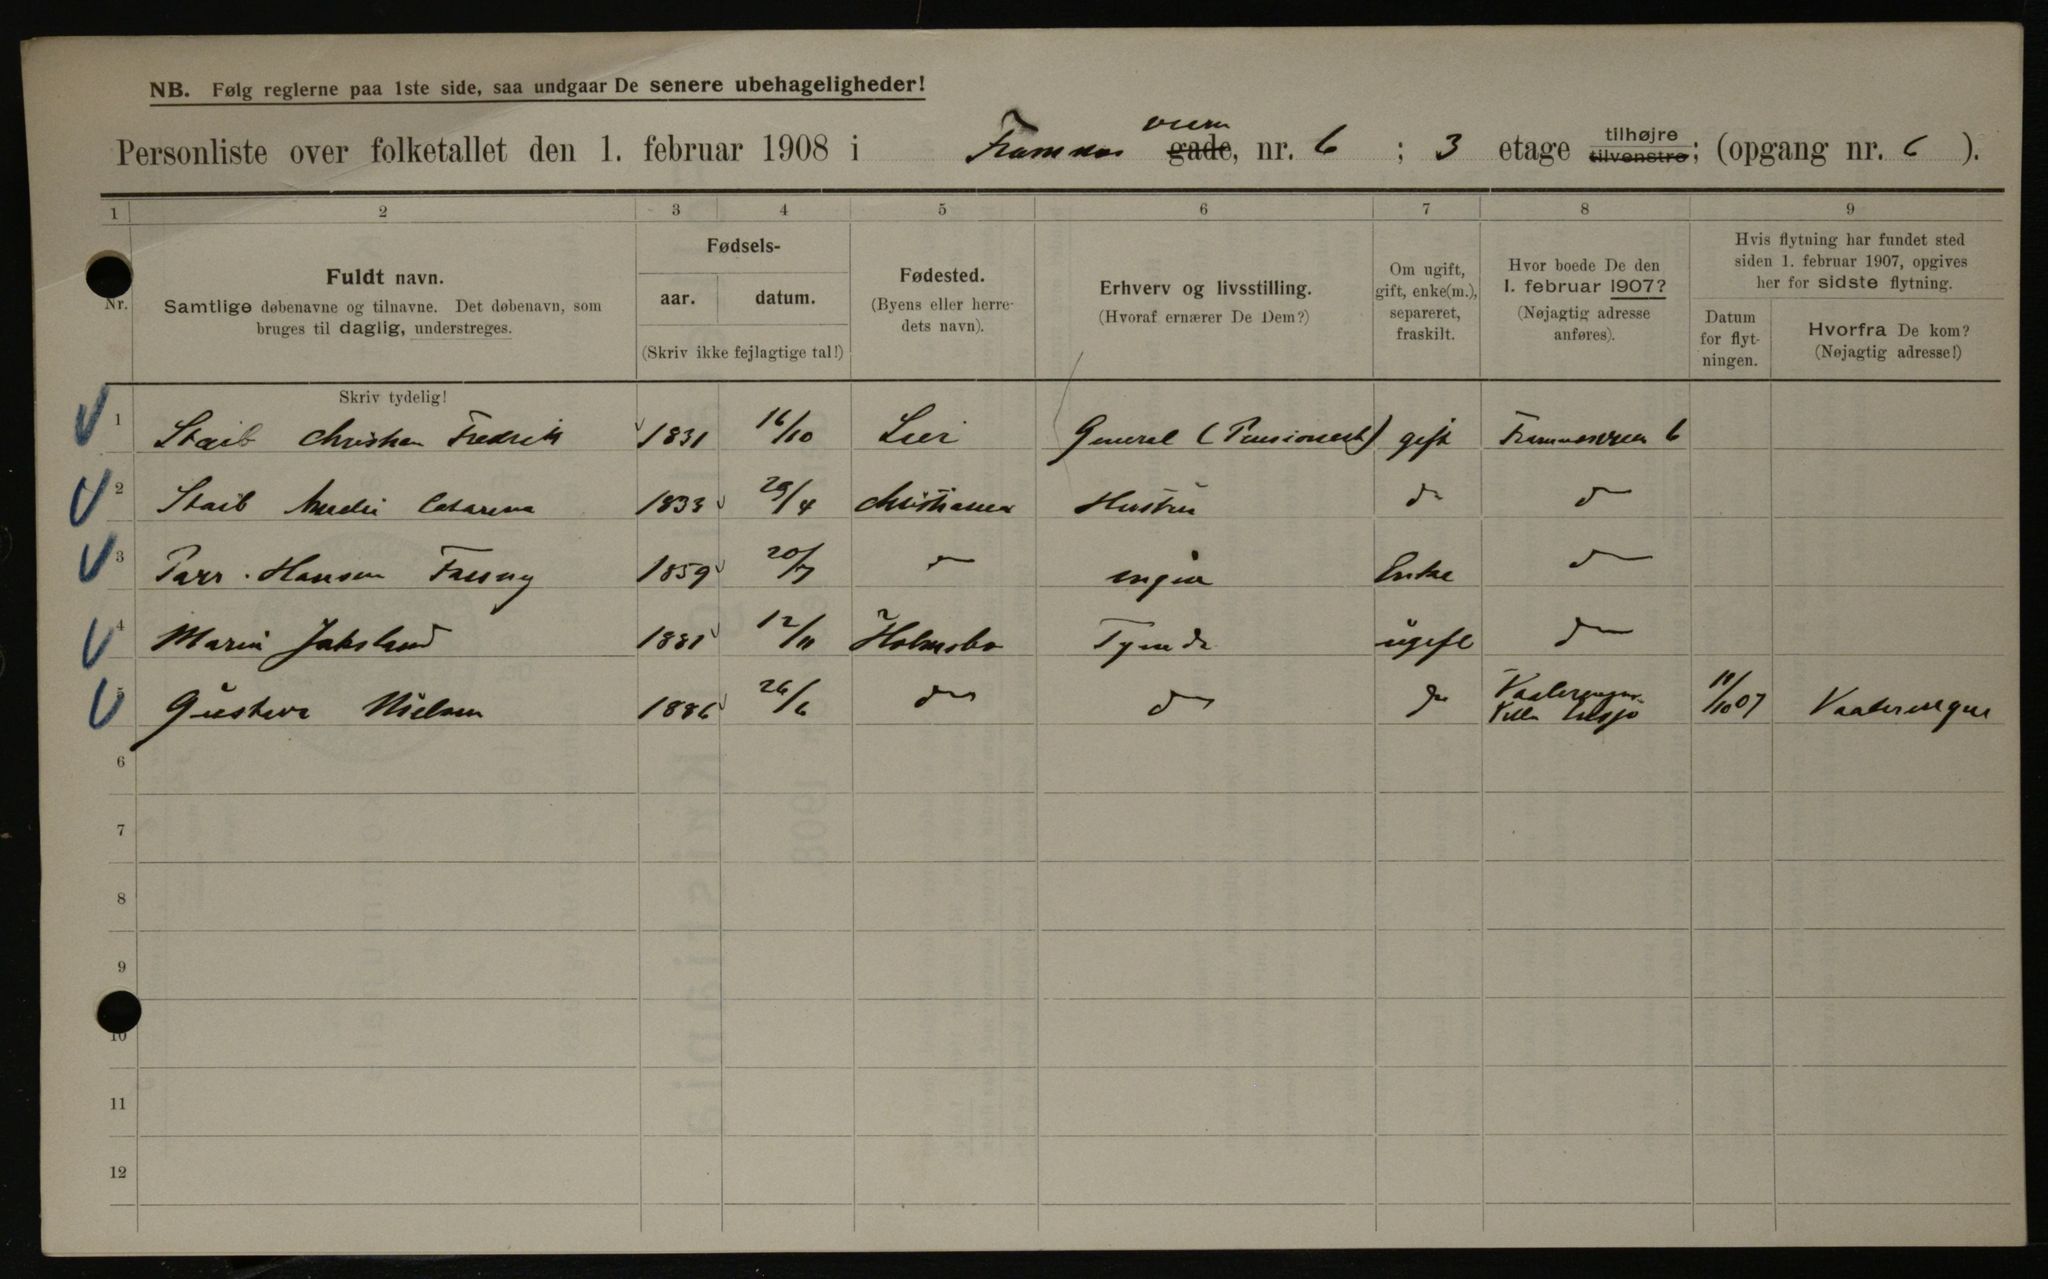 NB. Følg reglerne paa 1ste side, saa undgaar De senere ubehageligheder!
Personliste over folketallet den 1. februar 1908 i Framnæs veien gade, nr. 6 ; 3 etage tilhøjre tilvenstre; (opgang nr. 6 ).
1 2 3 4 5 6 7 8 9
Nr.
Fuldt navn.
Samtlige døbenavne og tilnavne. Det døbenavn, som
bruges til daglig, understreges.
Skriv tydelig!
Fødsels-
aar. datum.
(Skriv ikke fejlagtige tal!)
Fødested.
(Byens eller herre-
dets navn).
Erhverv og livsstilling.
(Hvoraf ernærer De Dem?)
Om ugift,
gift, enke(m.),
separeret,
fraskilt.
Hvor boede De den
1. februar 1907?
(Nøjagtig adresse
anføres).
Hvis flytning har fundet sted
siden 1. februar 1907, opgives
her for sidste flytning.
Datum
for flyt-
ningen.
Hvorfra De kom?
(Nøjagtig adresse!)
1 Staib Christian Fredrik 1831 16/10 Lier General (Pensionert) gift Framnæsveien 6
2 Staib Catarina 1833 29/4 Christiania Hustru do do
3 Parr. Hansen Fanny 1859 20/7 do ingen Enke do
4 Marie Jakslund 1881 12/11 Holmsbo Tjende ugift do
5 Gustava Nielsen 1886 26/6 do do do Vaalerengen Villa 11/10 07 Vaalerengen
6
7
8
9
10
11
12